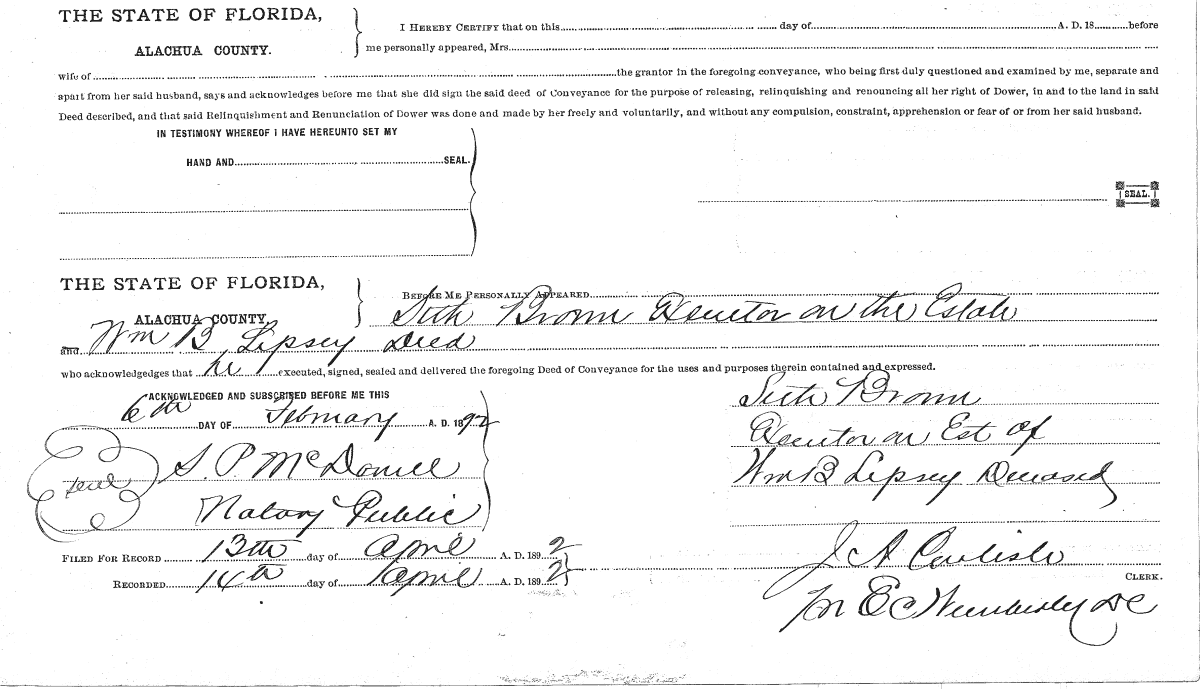 THE STATE OF FLORIDA,
ALACHUA COUNTY.
I HEREBY CERTIFY that on this day of A. D. 18 before
me personally appeared, Mrs.
wife of the grantor in the foregoing conveyance, who being first duly questioned and examined by me, separate and
apart from her said husband, says and acknowledges before me that she did sign the said deed of Conveyance for the purpose of releasing, relinquishing and renouncing all her right of Dower, in and to the land in said
Deed described, and that said Relinquishment and Renunciation of Dower was done and made by her freely and voluntarily, and without any compulsion, constraint, apprehension or fear of or from her said husband.
IN TESTIMONY WHEREOF I HAVE HEREUNTO SET MY
HAND AND SEAL.
SEAL.
THE STATE OF FLORIDA,
ALACHUA COUNTY.
BEFORE ME PERSONALLY APPEARED
Seth Brown Executor on the Estate
and Wm B Lipsey Decd
who acknowledgedges that he executed, signed, sealed and delivered the foregoing Deed of Conveyance for the uses and purposes therein contained and expressed.
ACKNOWLEDGED AND SUBSCRIBED BEFORE ME THIS
6th DAY OF February A. D. 1892
Seal
S. P. McDowell
Notary Public
Seth Brown
Executor on Est of
Wm B Lipsey Deceased
FILED FOR RECORD 13th day of April A. D. 1892
RECORDED 14th day of April A. D. 1892
J A Carlisle
CLERK.
E C Wimberley DC